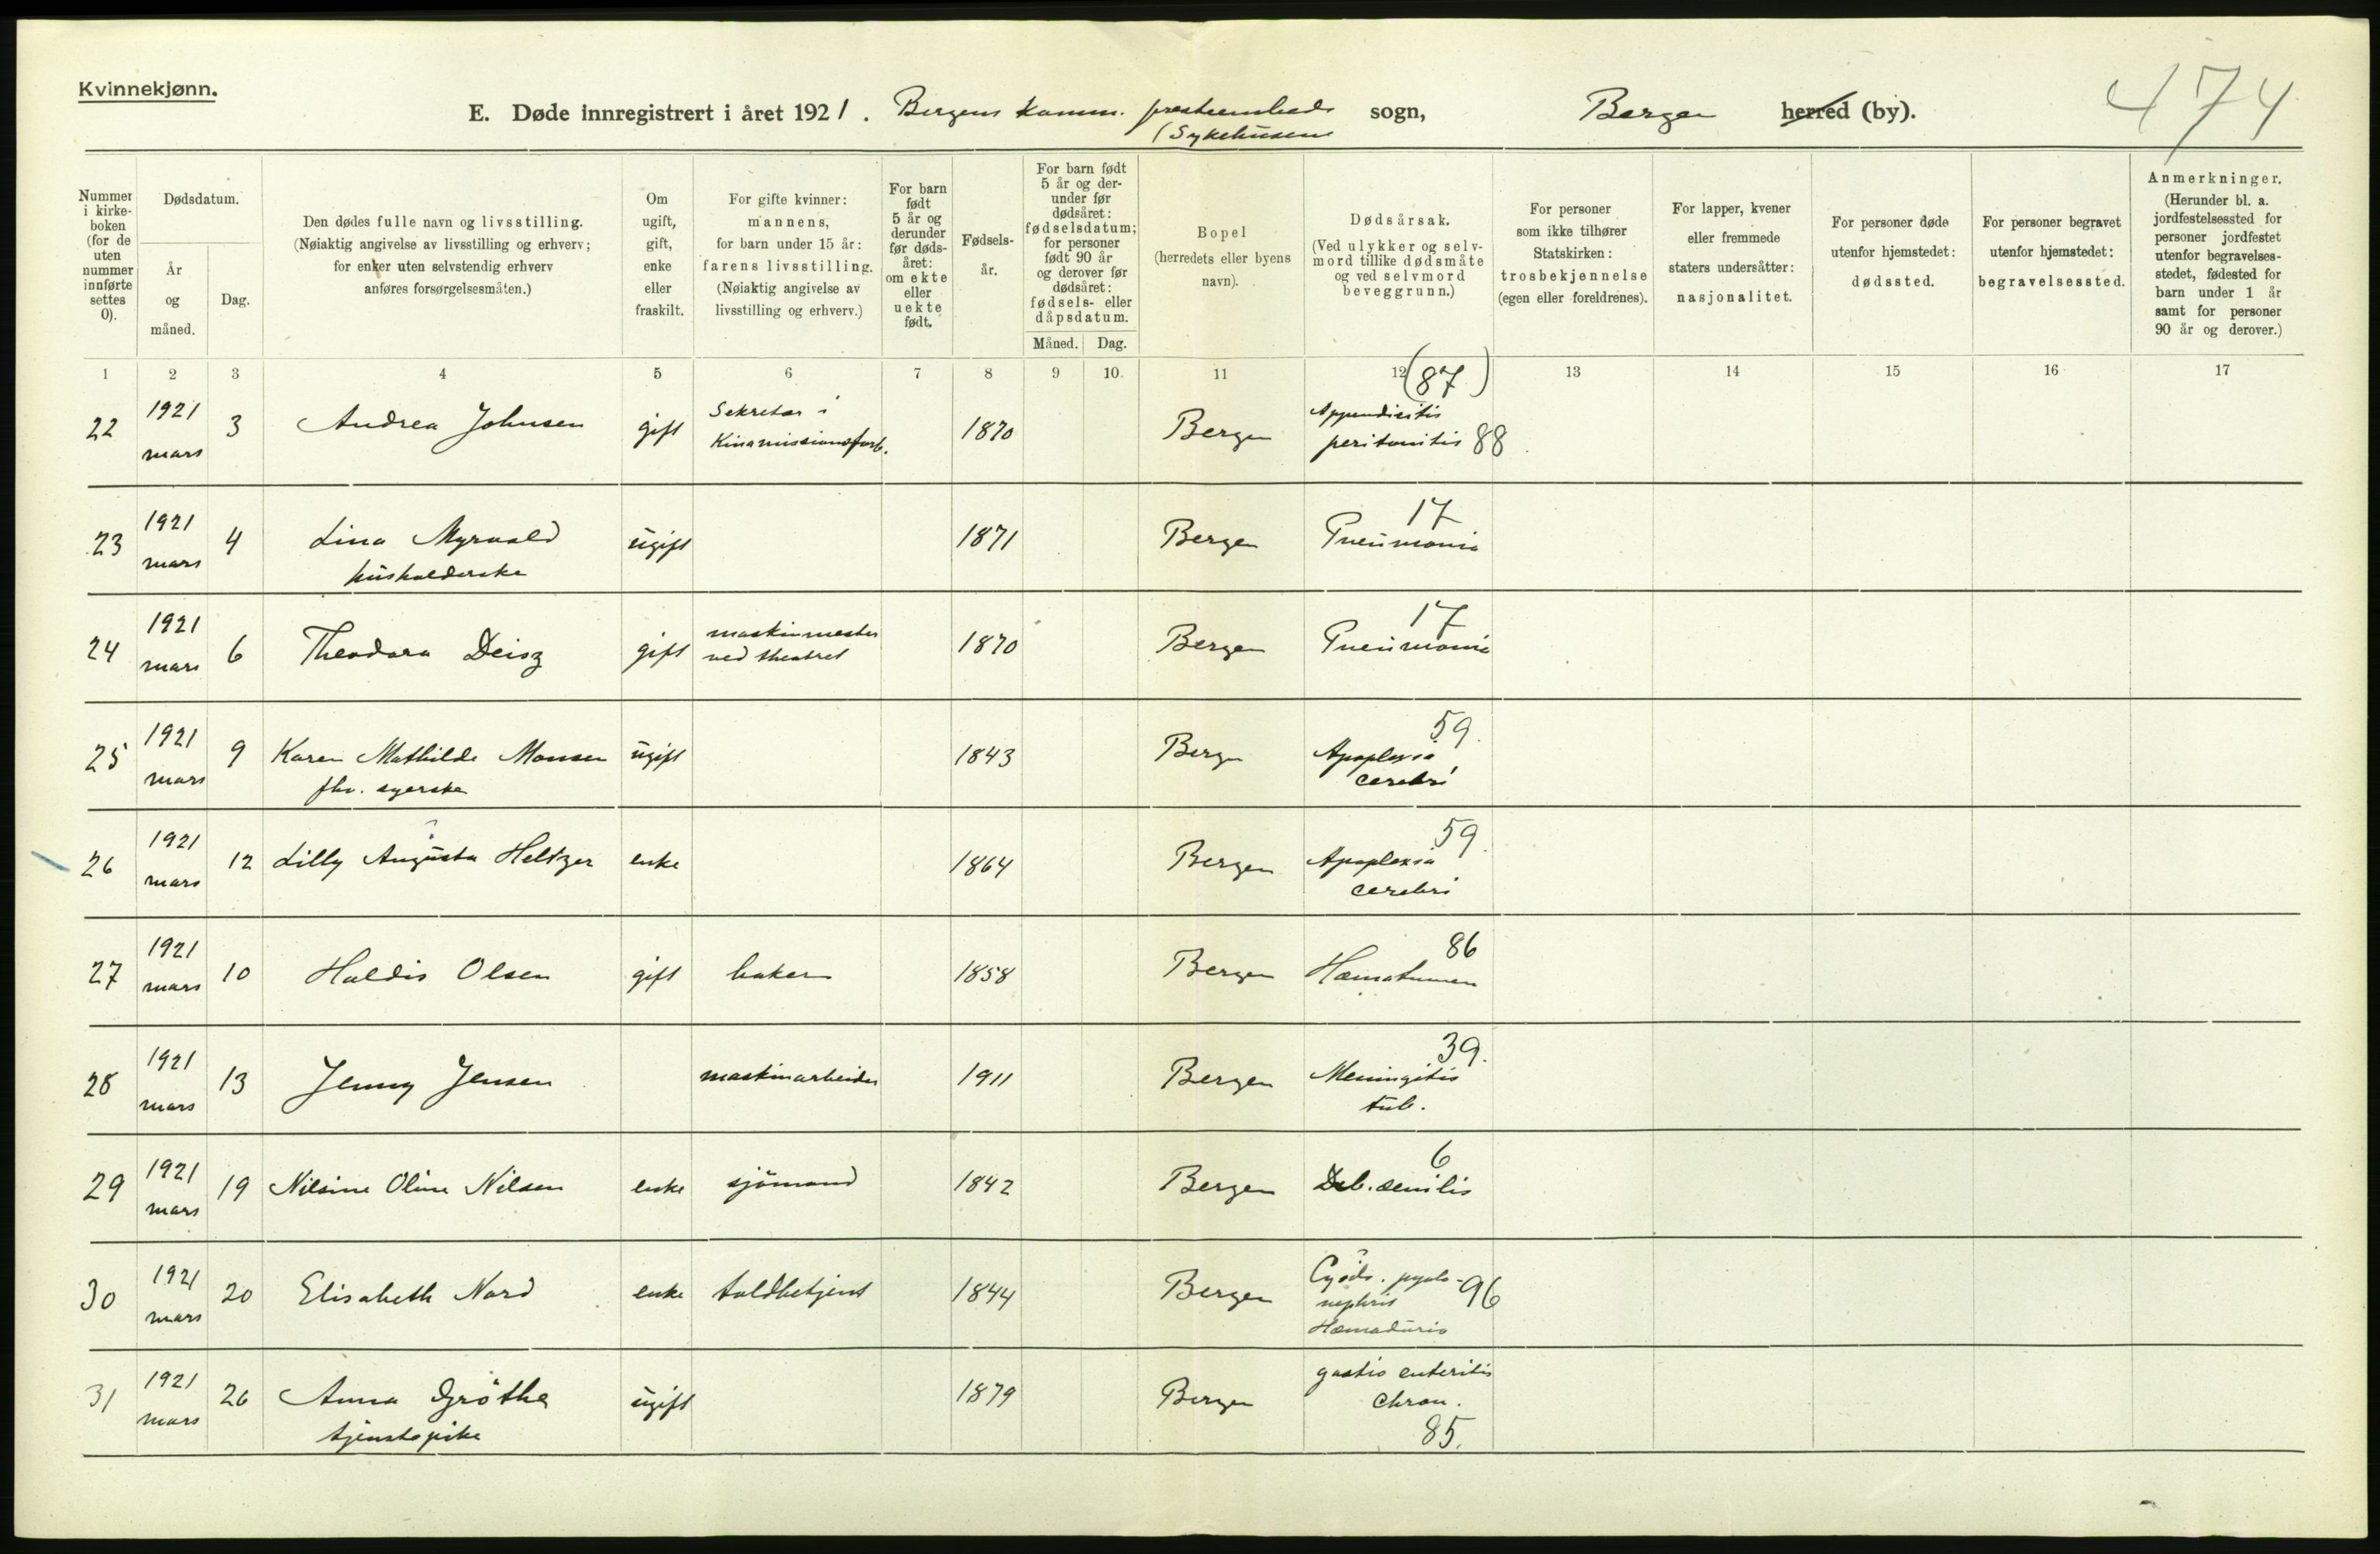 Kvinnekjønn.
E. Døde innregistrert i året 1921. Bergens komm. presteembede sogn, Bergen herred (by).
(Sykehusene
474
Nummer i kirkeboken (for de uten nummer innførte settes 0).
Dødsdatum.
År og måned.
Dag.
Den dødes fulle navn og livsstilling.
(Nøiaktig angivelse av livsstilling og erhverv;
for enker uten selvstendig erhverv
anføres forsørgelsesmåten.)
Om
ugift,
gift,
enke
eller
fraskilt.
For gifte kvinner:
mannens,
for barn under 15 år:
farens livsstilling.
(Nøiaktig angivelse av
livsstilling og erhverv.)
For barn
født
5 år og
derunder
før døds-
året:
om ekte
eller
uekte
født.
Fødsels-
år.
For barn født
5 år og der-
under før
dødsåret:
fødselsdatum;
for personer
født 90 år
og derover før
dødsåret:
fødsels- eller
dåpsdatum.
Måned. Dag.
Bopel
(herredets eller byens
navn).
Dødsårsak.
(Ved ulykker og selv-
mord tillike dødsmåte
og ved selvmord
beveggrunn.)
For personer
som ikke tilhører
Statskirken:
trosbekjennelse
(egen eller foreldrenes).
For lapper, kvener
eller fremmede
staters undersåtter:
nasjonalitet.
For personer døde
utenfor hjemstedet:
dødssted.
For personer begravet
utenfor hjemstedet:
begravelsessted.
Anmerkninger.
(Herunder bl. a.
jordfestelsessted for
personer jordfestet
utenfor begravelses-
stedet, fødested for
barn under 1 år
samt for personer
90 år og derover.)
1 2 3 4 5 6 7 8 9 10 11 12 13 14 15 16 17
22 1921 mars 3 Andrea Johnsen gift Sekretær i Kinamissionsforb. 1870 Bergen (87) Appendicitis peritonitis 88
23 1921 mars 4 Lina Myrvold husholderske ugift 1871 Bergen 17 Pneumonia
24 1921 mars 6 Theodora Deisz gift maskinmester ved theatret 1870 Bergen 17 Pneumonia
25 1921 mars 9 Karen Mathilde Monsen fhv. syerske ugift 1843 Bergen 59. Apoplexia cerebri
26 1921 mars 12 Lilly Augusta Heltzer enke 1864 Bergen 59. Apoplexia cerebri
27 1921 mars 10 Haldis Olsen gift baker 1858 Bergen 86
28 1921 mars 13 Jenny Jensen maskinarbeider 1911 Bergen 39. Meningitis tub.
29 1921 mars 19 Nilsine Oline Nilsen enke sjömand 1842 Bergen 6 Deb. senilis
30 1921 mars 20 Elisabeth Nord enke toldbetjent 1844 Bergen pyelo-nephrit Hæmaturia 96
31 1921 mars 26 Anna Gröthe tjenstepike ugift 1879 Bergen gastro enteritis chron. 85.